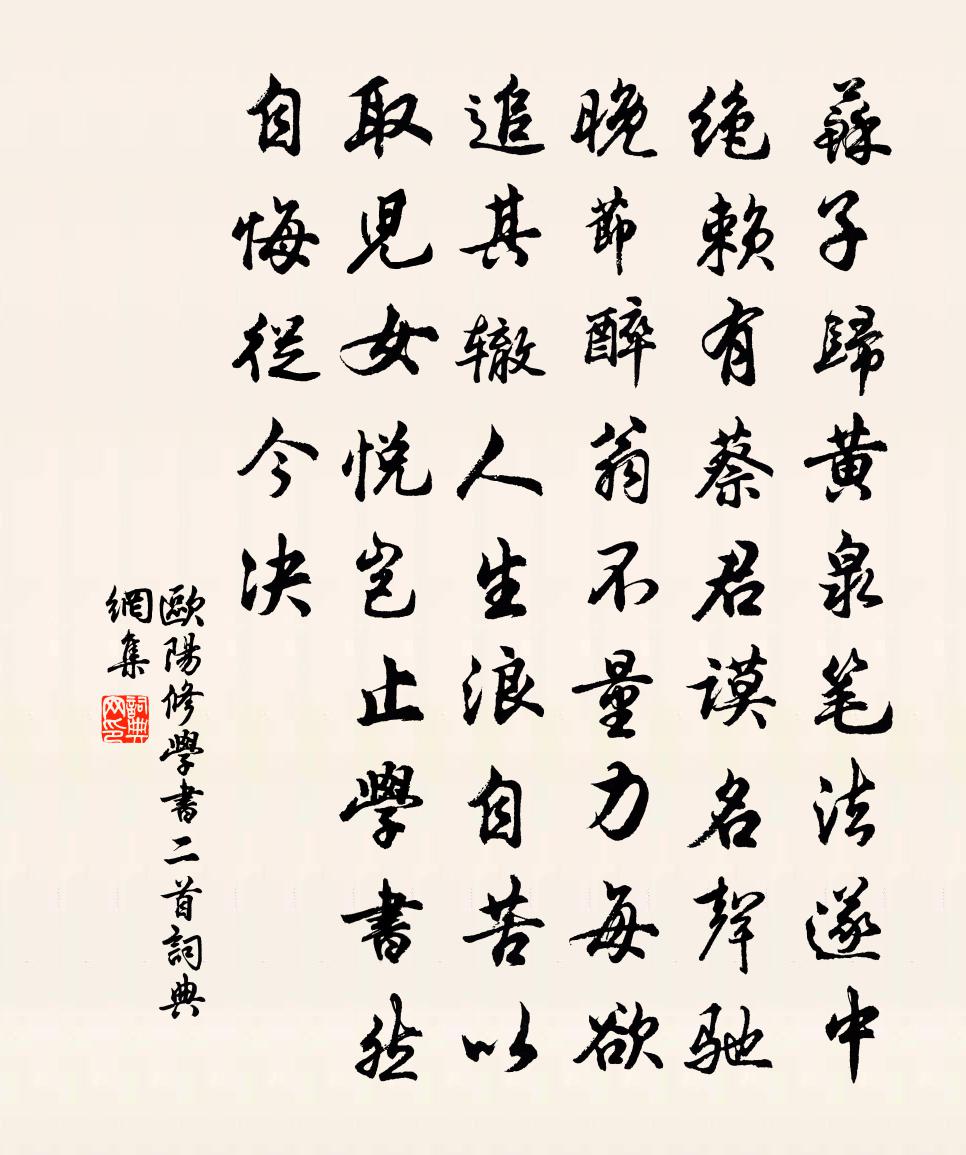 蘇子歸黃泉笔法遂中
绝赖有蔡君谟名聲驰
晚節醉翁不量力每欲
追其辙人生浪自苦以
取兒女悦岂止學書然
自悔從今决
歐陽修學書二首詞典
網集
詞典
网印